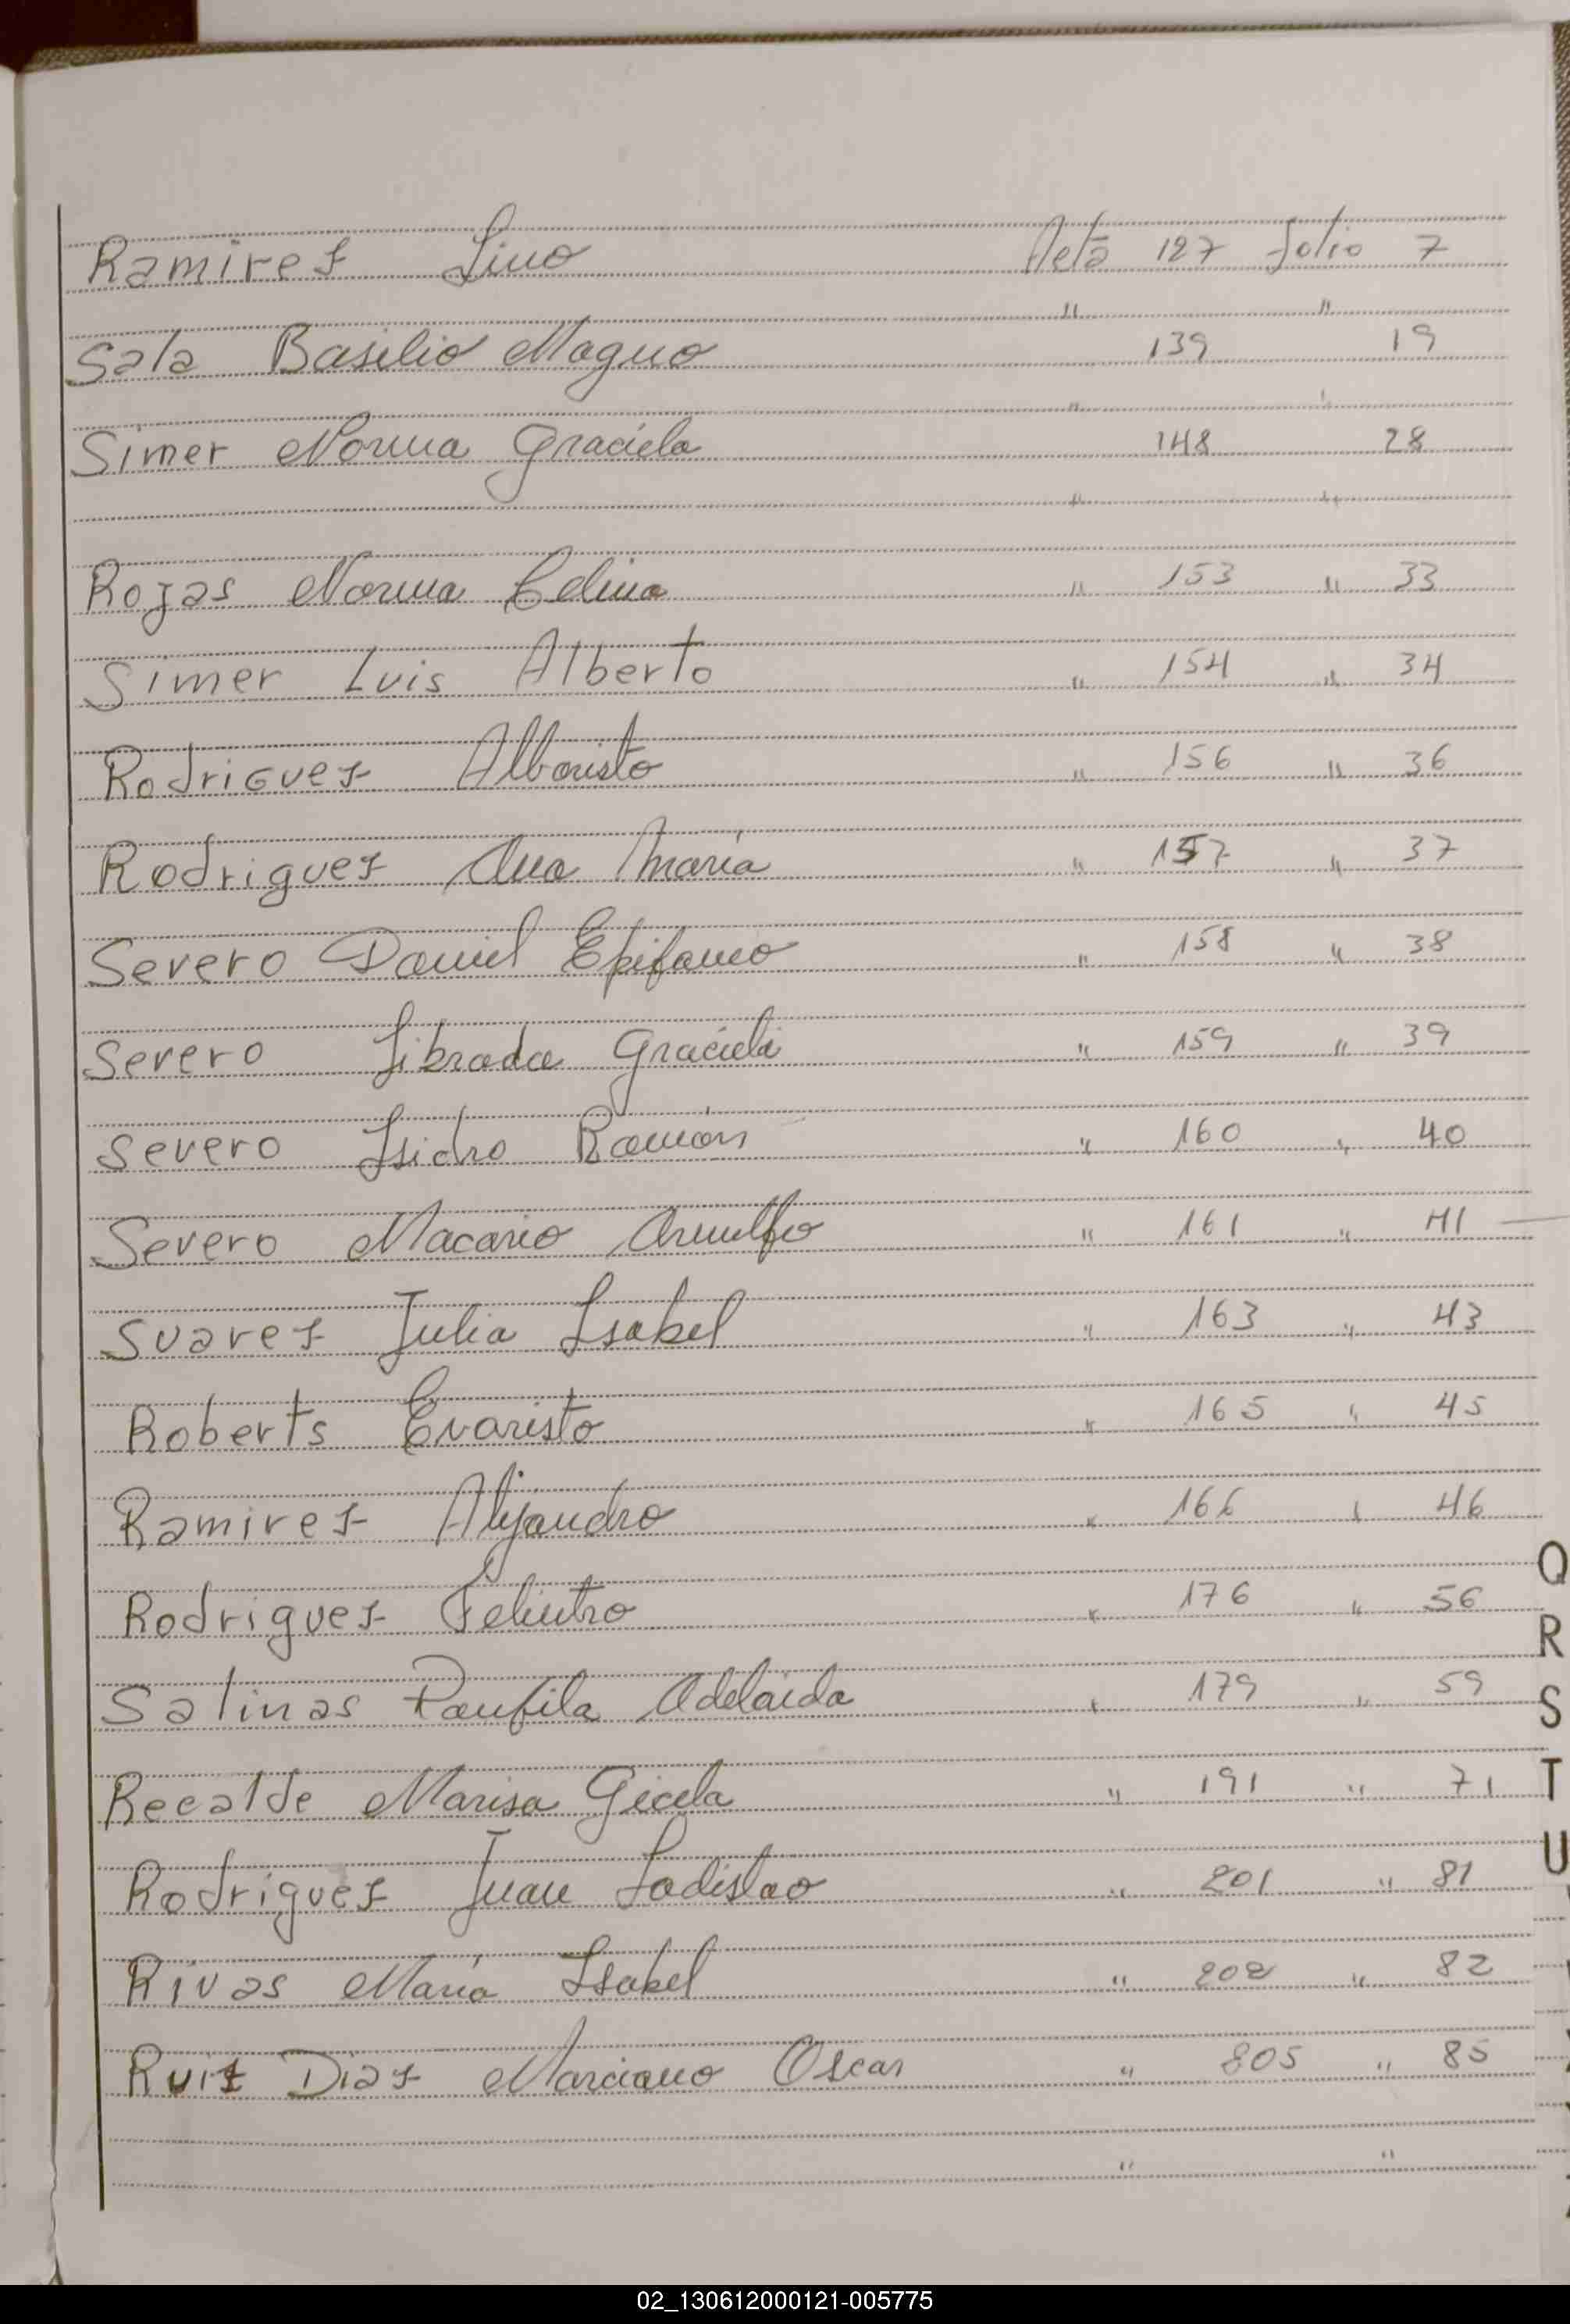 Ramirez Lino Acta 127 folio 7
" "
Sala Basilio Magno 139 19
" "
Simer Norma Graciela 148 28
" "
Rojas Norma Celina " 153 " 33
Simer Luis Alberto " 154 " 34
Rodriguez Albaristo " 156 " 36
Rodriguez Ana María " 157 " 37
Severo Daniel Epifanio " 158 " 38
Severo Librada Graciela " 159 " 39
Severo Isidro Ramón " 160 " 40
Severo Macario Arnulfo " 161 " 41
Suarez Julia Isabel " 163 " 43
Roberts Evaristo " 165 " 45
Ramirez Alejandro " 166 " 46
Rodriguez " 176 " 56
Salinas Panfila Adelaida " 179 " 59
Recalde Marisa Gicela " 191 " 71
Rodriguez Juan Ladislao " 201 " 81
Rivas María Isabel " 202 " 82
Ruiz Diaz Marciano Oscar " 205 " 85
" "
Q
R
S
T
U
02_130612000121-005775